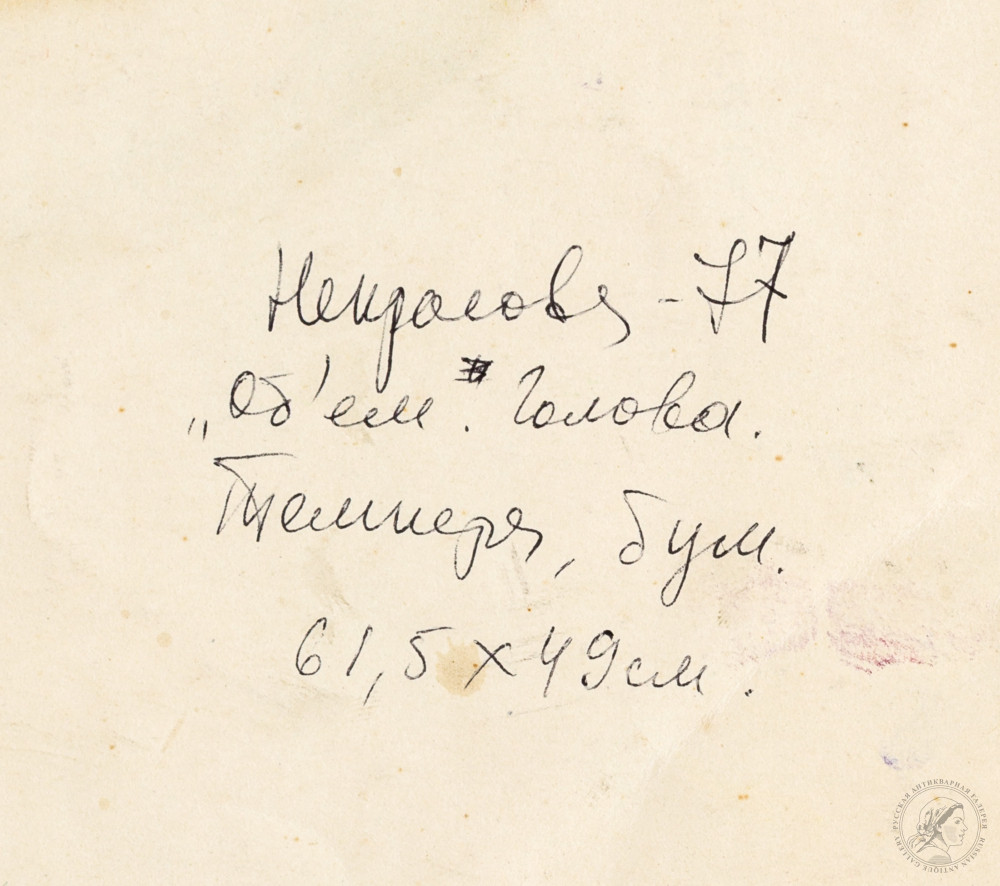 Некрасова - 77
„Об'ем". Голова.
Темпера, бум.
61,5 х 49 см.
РУССКАЯ АНТИКВАРНАЯ ГАЛЕРЕЯ
RUSSIAN ANTIQUE GALLERY